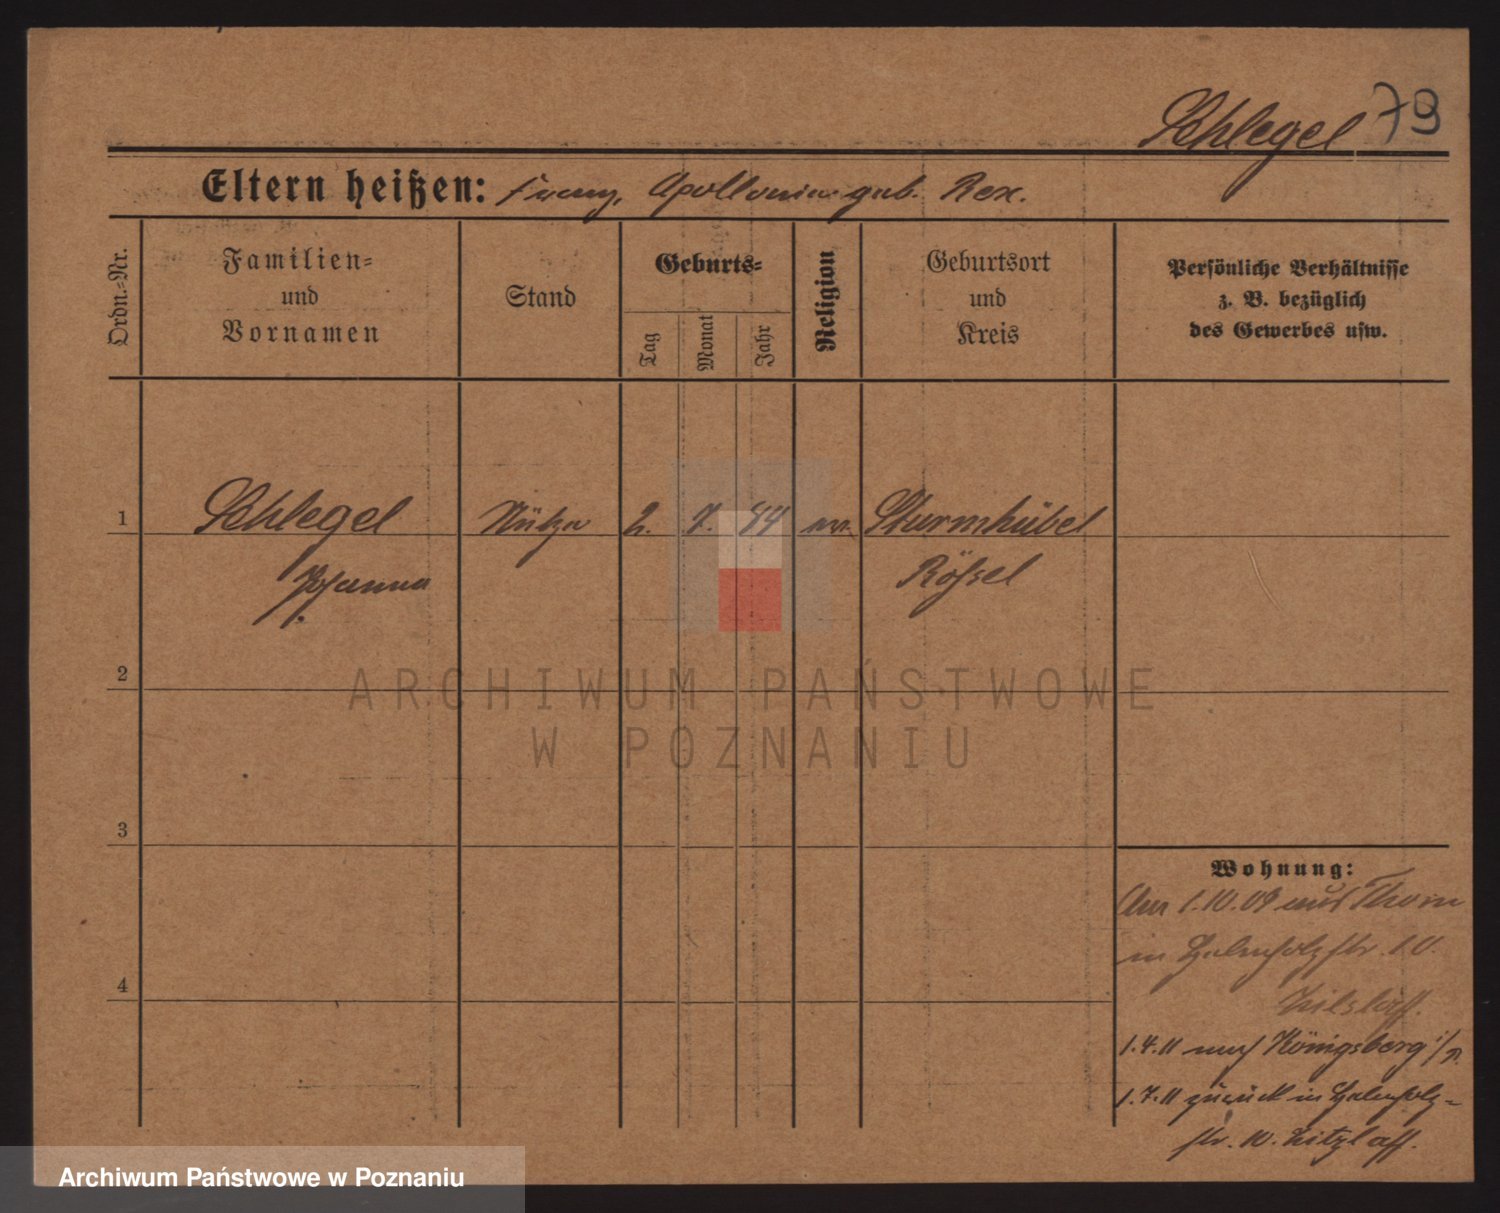 Schlegel 79
Eltern heißen: Franz, Apollonia geb. Rex.
Ordn.=Nr.
Familien=
und
Vornamen
Stand
Geburts=
Tag
Monat
Jahr
Religion
Geburtsort
und
Kreis
Persönliche Verhältnisse
z. B. bezüglich
des Gewerbes usw.
1 Schlegel Stütze 2. 7. 84 Sturmhübel
Johanna Rößel
2
3
4
Wohnung:
Am 1.10.09 aus Thorn
in str. 10.
1.4.11 nach Königsberg i/P.
1.7.11 zurück in
str. 10. Litzlaff.
ARCHIWUM PAŃSTWOWE
W POZNANIU
Archiwum Państwowe w Poznaniu